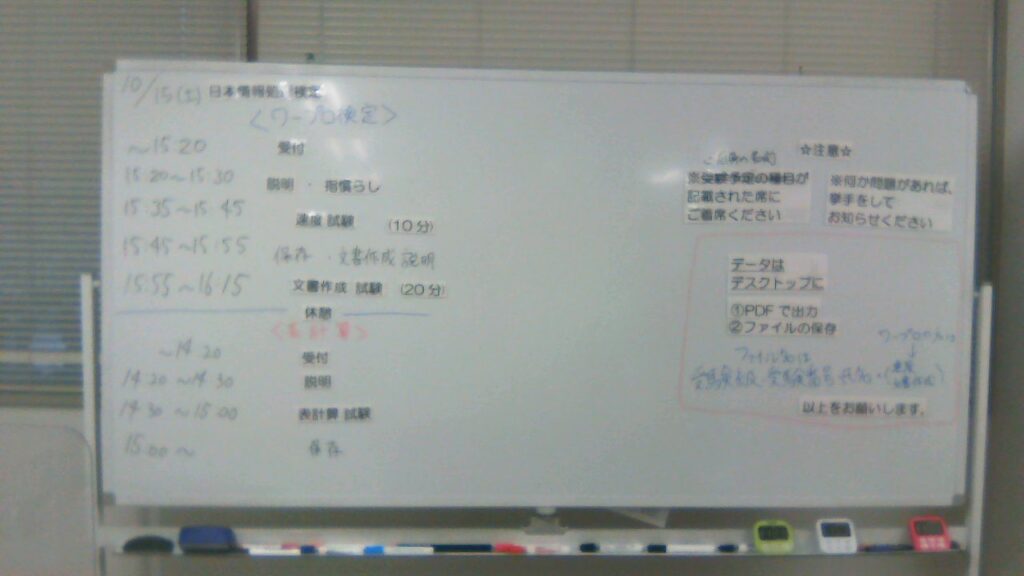 10/15(土) 日本情報処理検定
<ワープロ検定>
～15:20 受付
15:20～15:30 説明 ・ 指慣らし
15:35～15:45 速度 試験 (10分)
15:45～15:55 保存 ・文書作成 説明
15:55～16:15 文書作成 試験 (20分)
休憩
<表計算>
～14:20 受付
14:20～14:30 説明
14:30～15:00 表計算 試験
15:00～ 保存
☆注意☆
※受験予定の種目が
記載された席に
ご着席ください
※何か問題があれば、
挙手をして
お知らせください
データは
デスクトップに
①PDFで出力
②ファイルの保存
ワープロの方は
↓
ファイル名は
受験級 受験番号 氏名・(速度
文書作成)
以上をお願いします。